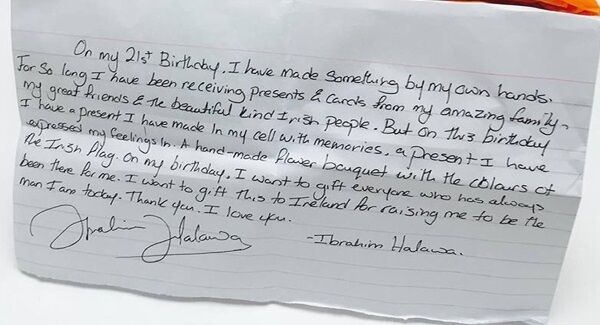 On my 21st Birthday. I have made something by my own hands.
For so long I have been receiving presents & cards from my amazing family,
my great friends & the beautiful kind Irish people. But on this birthday
I have a present I have made in my cell with memories, a present I have
expressed my feelings in. A hand-made flower bouquet with the colours of
the Irish flag. On my birthday, I want to gift everyone who has always
been there for me. I want to gift this to Ireland for raising me to be the
man I am today. Thank you. I love you.
Ibrahim Halawa
-Ibrahim Halawa.